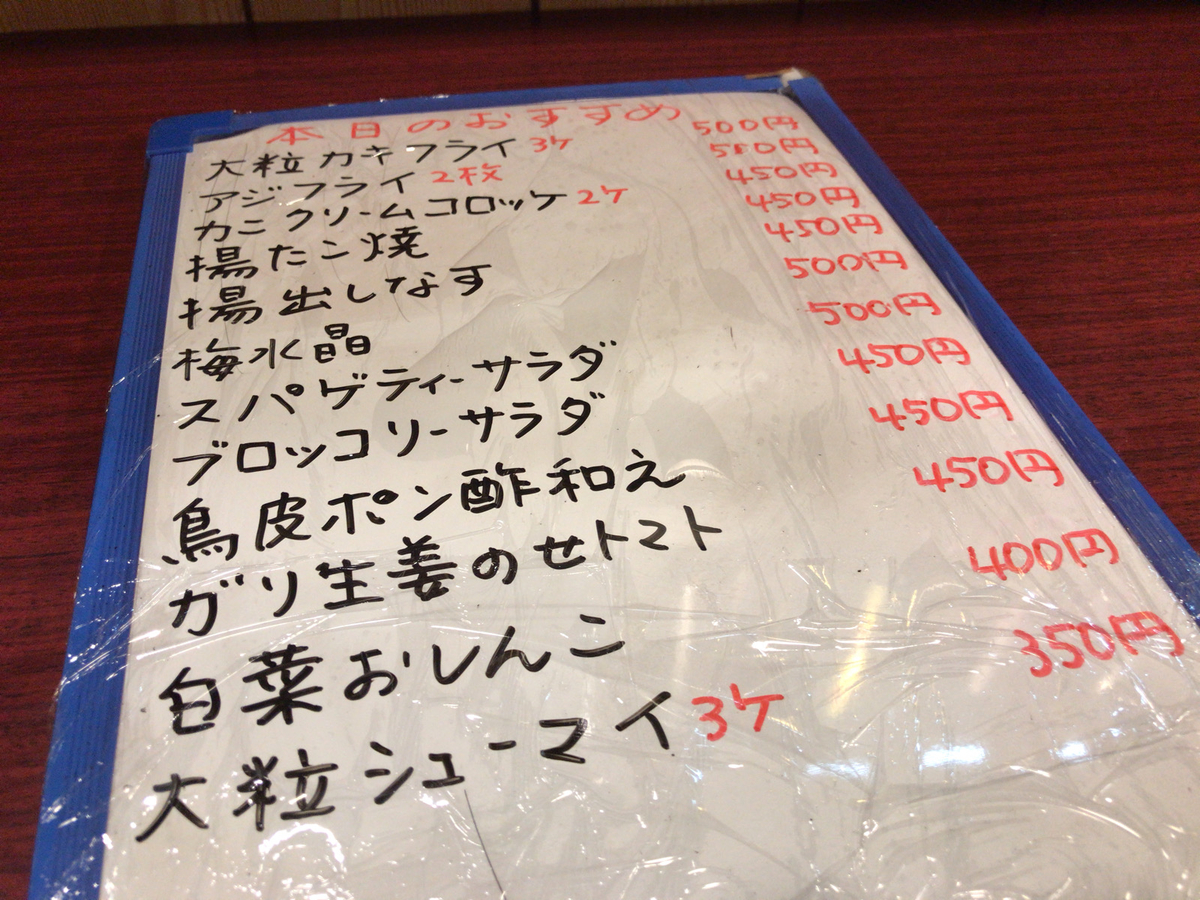 本日のおすすめ
大粒カキフライ 3ケ 500円
アジフライ 2枚
カニクリームコロッケ 2ケ 450円
揚たこ焼 450円
揚出しなす 450円
梅水晶 500円
スパゲティーサラダ 500円
ブロッコリーサラダ 450円
鳥皮ポン酢和え 450円
ガリ生姜のせトマト 450円
白菜おしんこ 400円
大粒シューマイ 3ケ 350円